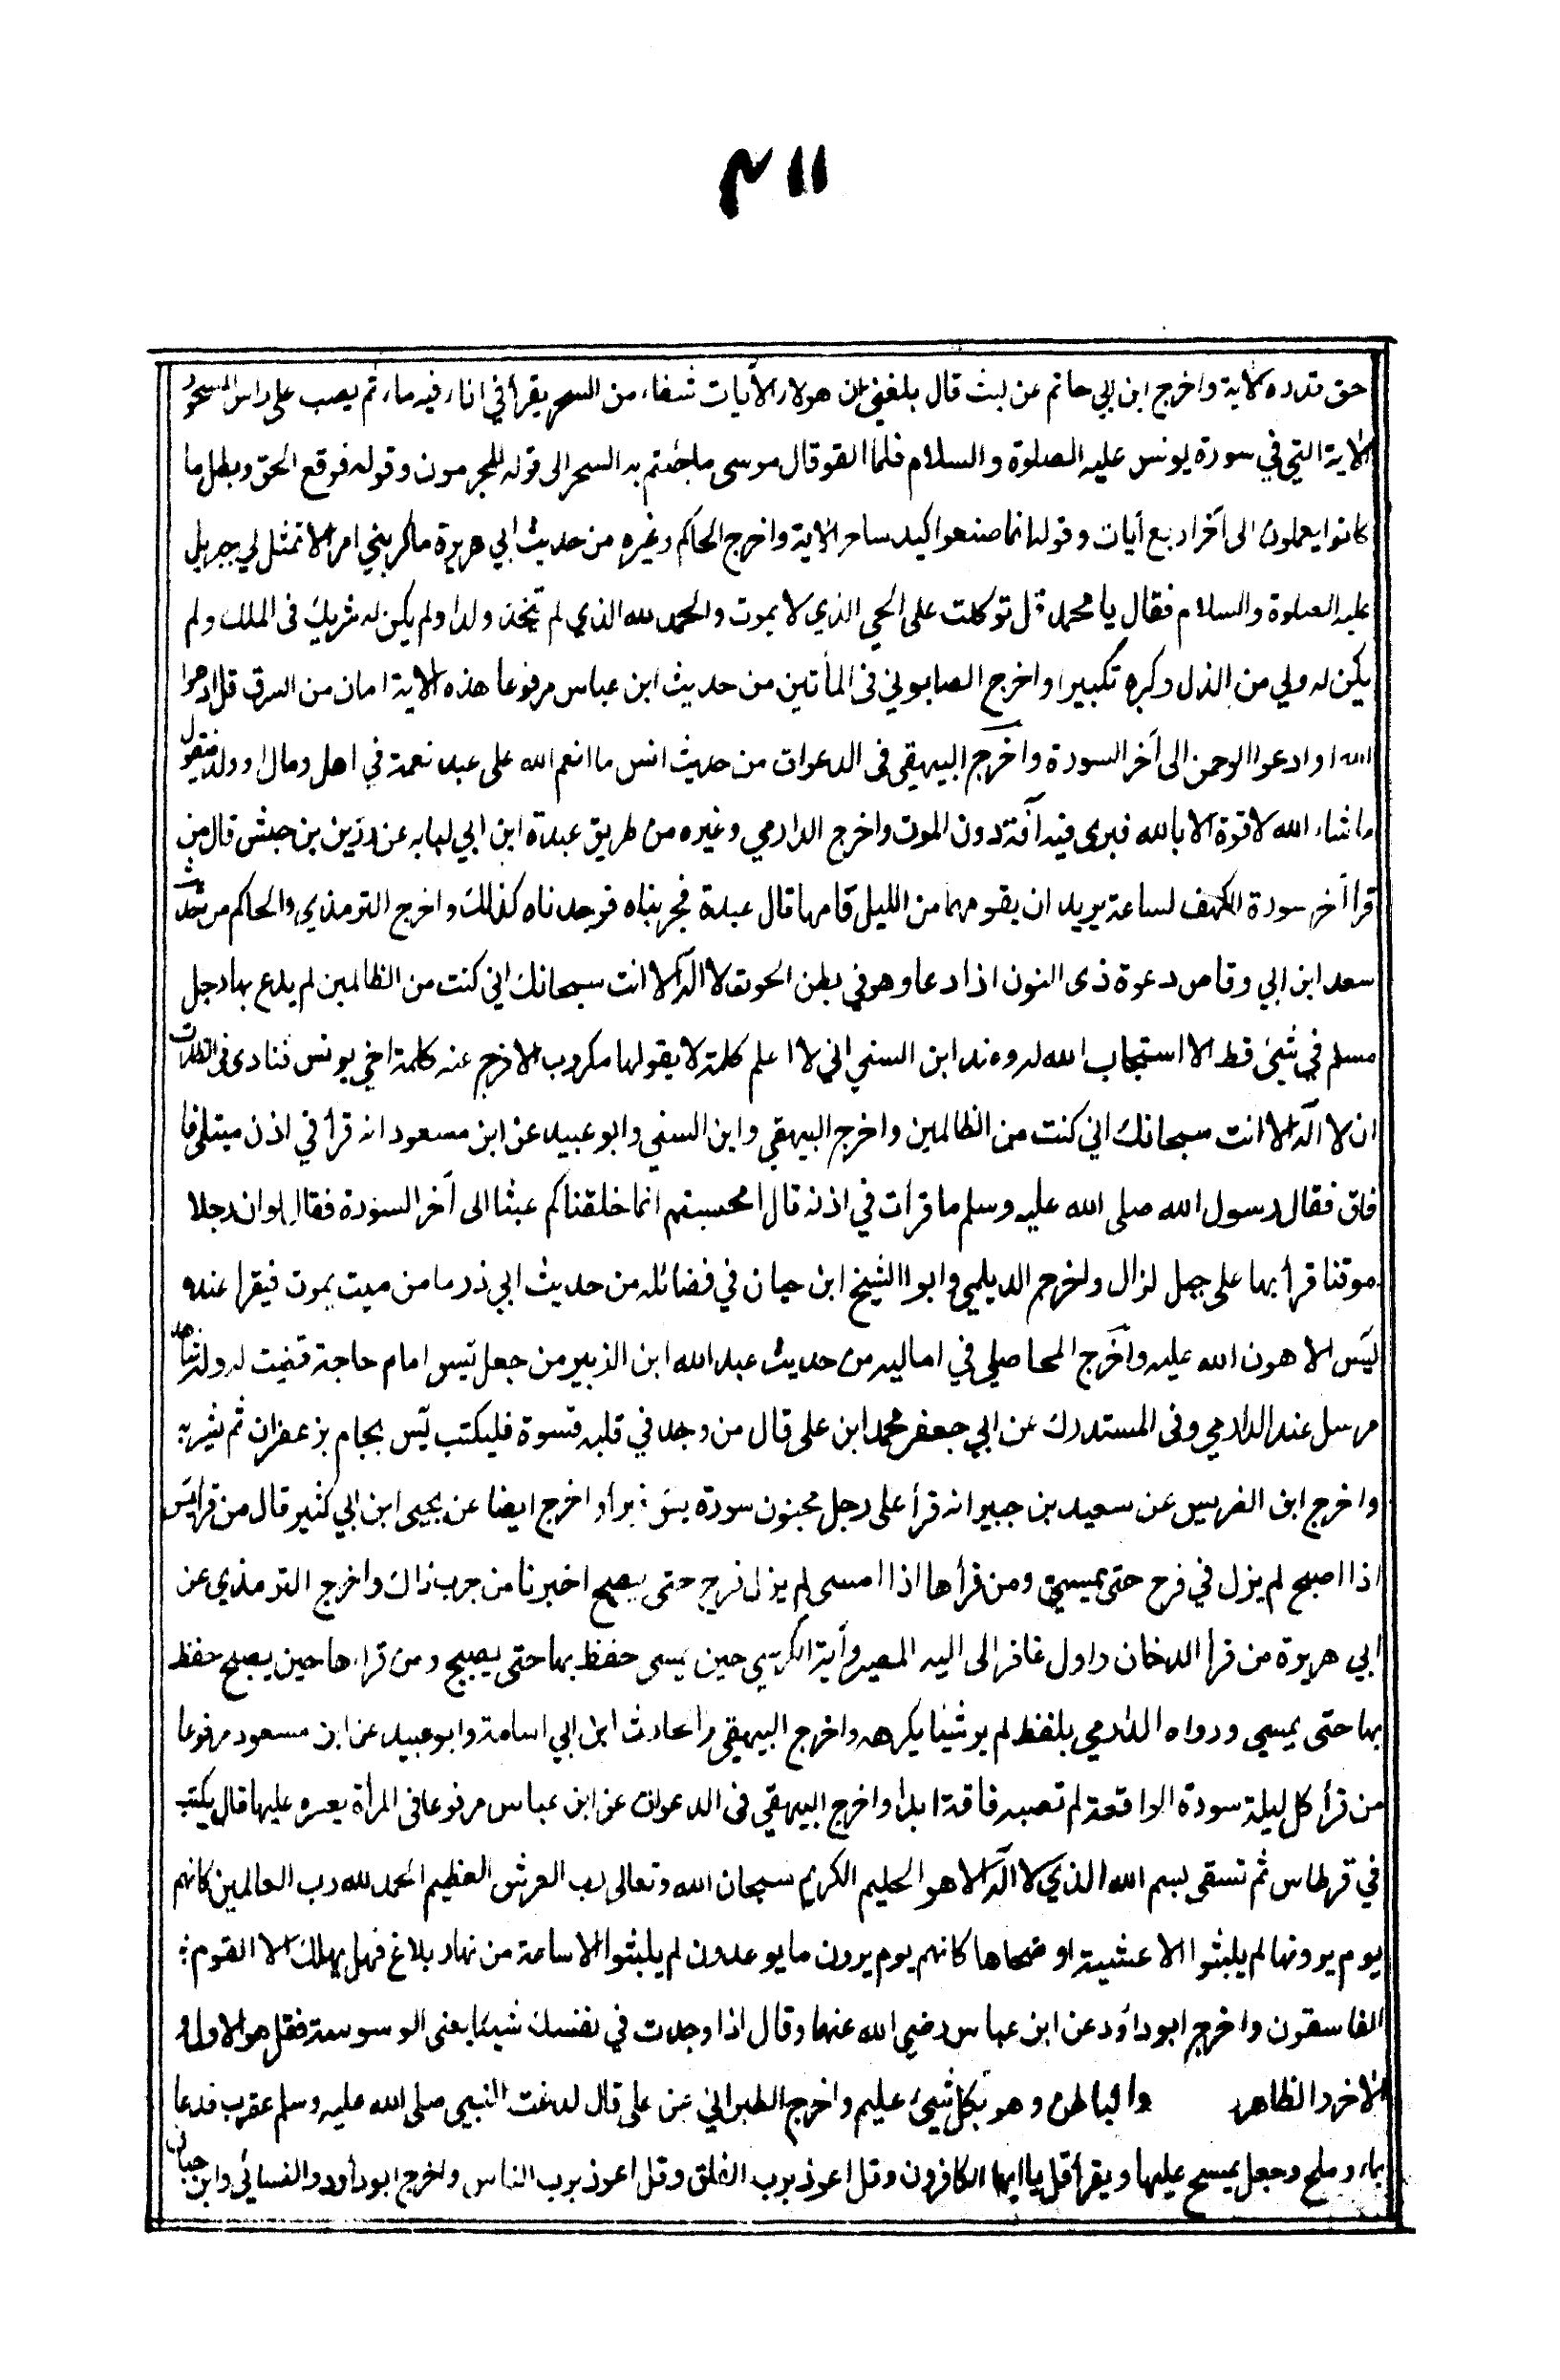 ٣١١
حق قدره الاية واخرج ابن ابي حاتم عن ليث قال بلغني ان هولاء الأيات شفاء من السحر يقرأ في اناء فيه ماء ثم يصب على راس المسحور
الاية التي في سورة يونس عليه الصلوة والسلام فلما القو قال موسى ما جئتم به السحر الى قوله المجرمون وقوله فوقع الحق وبطل ما
كانوا يعملون الى أخر اربع أيات وقوله انما صنعوا كيد ساحر الاية واخرج الحاكم وغيره من حديث ابي هريرة ما كربني امر الا تمثل لي جبريل
عليه الصلوة والسلام فقال يا محمد قل توكلت على الحي الذي لا يموت والحمد لله الذي لم يتخذ ولدا ولم يكن له شريك فى الملك ولم
يكن له ولي من الذل وكبره تكبيرا واخرج الصابوني فى المأتين من حديث ابن عباس مرفوعا هذه الاية امان من السرق قل ادعوا
الله او ادعوا الرحمن الى أخر السورة واخرج البيهقي فى الدعوات من حديث انس ما انعم الله على عبد نعمة في اهل ومال او ولد فيقول
ما شاء الله لا قوة الا بالله فيرى فيه آفة دون الموت واخرج الدارمي وغيره من طريق عبدة ابن ابي لبابه عن رزين بن حبش قال من
قرا أخر سورة الكهف لساعة يريد ان يقومها من الليل قامها قال عبدة فجربناه فوجدناه كذلك واخرج الترمذي والحاكم من حديث
سعد ابن ابي وقاص دعوة ذى النون اذا دعا وهو في بطن الحوت لا اله الا انت سبحانك اني كنت من الظالمين لم يدع بها رجل
مسلم في شيئ قط الا استجاب الله له وعند ابن السني اني لا اعلم كلمة لا يقولها مكروب الا فرج عنه كلمة اخي يونس فنادى فى الظلمات
ان لا اله الا انت سبحانك اني كنت من الظالمين واخرج البيهقي وابن السني وابو عبيد عن ابن مسعود انه قرأ في اذن مبتلى فا
فاق فقال رسول الله صلى الله عليه وسلم ما قرأت في اذنه قال افحسبتم انما خلقناكم عبثا الى أخر السورة فقال لو ان رجلا
موقنا قرأ بها على جبل لزال واخرج الديلمي وابو الشيخ ابن حيان في فضائله من حديث ابي ذر ما من ميت يموت فيقرا عنده
يس الا هون الله عليه واخرج المحاملي في اماليه من حديث عبد الله ابن الزبير من جعل يس امام حاجة قضيت له وله شاهد
مرسل عند الدارمي وفى المستدرك عن ابي جعفر محمد ابن على قال من وجد في قلبه قسوة فليكتب يس بجام بزعفران ثم يشربه
واخرج ابن الضريس عن سعيد بن جبير انه قرأ على رجل مجنون سورة يس فبرأ واخرج ايضا عن يحيى ابن ابي كثير قال من قرأ يس
اذا اصبح لم يزل في فرح حتى يمسي ومن قرأها اذا امسى لم يزل فرح حتى يصبح اخبرنا من جرب ذاك واخرج الترمذي عن
ابي هريرة من قرأ الدخان واول غافر الى اليه المصير وأية الكرسي حين يمسى حفظ بها حتى يصبح ومن قراءها حين يصبح حفظ
بها حتى يمسي ورواه الدارمي بلفظ لم ير شيئا يكرهه واخرج البيهقي والحارث ابن ابي اسامة وابو عبيد عن ابن مسعود مرفوعا
من قرأ كل ليلة سورة الواقعة لم تصبه فاقة ابدا واخرج البيهقي فى الدعوات عن ابن عباس مرفوعا فى المرأة يعسر عليها قال يكتب
في قرطاس ثم تسقى بسم الله الذي لا اله الا هو الحليم الكريم سبحان الله وتعالى رب العرش العظيم الحمد لله رب العالمين كانهم
يوم يرونها لم يلبثوا الا عشية او ضحاها كانهم يوم يرون ما يوعدون لم يلبثوا الا ساعة من نهار بلاغ فهل يهلك الا القوم
الفاسقون واخرج ابو داؤد عن ابن عباس رضي الله عنهما وقال اذا وجدت في نفسك شيئا يعنى الوسوسة فقل هو الاول و
الاخر والظاهر والباطن وهو بكل شيئ عليم واخرج الطبراني عن على قال لدغت النبي صلى الله عليه وسلم عقرب فدعا
بماء وملح وجعل يمسح عليها ويقرأ قل يا ايها الكافرون وقل اعوذ برب الفلق وقل اعوذ برب الناس واخرج ابو دأود والنسائي وابن حبان